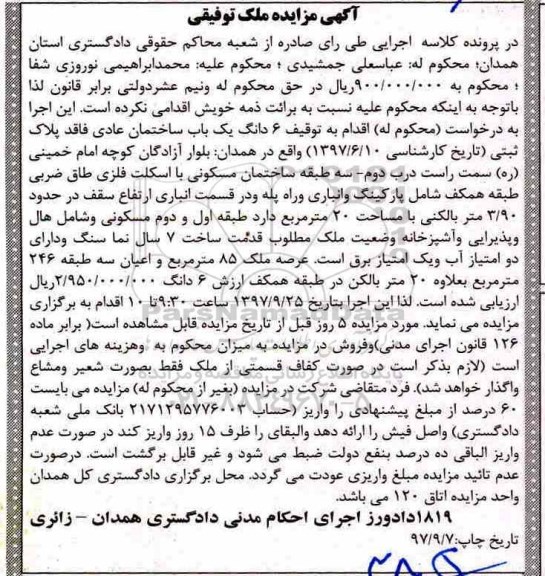 آگهی مزایده ملک توفیقی
در پرونده کلاسه اجرایی طی رای صادره از شعبه محاکم حقوقی دادگستری استان
همدان؛ محکوم له: عباسعلی جمشیدی ؛ محکوم علیه: محمدابراهیمی نوروزی شفا
؛ محکوم به ۹۰۰/۰۰۰/۰۰۰ریال در حق محکوم له ونیم عشردولتی برابر قانون لذا
باتوجه به اینکه محکوم علیه نسبت به برائت ذمه خویش اقدامی نکرده است. این اجرا
به درخواست (محکوم له) اقدام به توقیف ۶ دانگ یک باب ساختمان عادی فاقد پلاک
ثبتی (تاریخ کارشناسی ۱۳۹۷/۶/۱۰) واقع در همدان: بلوار آزادگان کوچه امام خمینی
(ره) سمت راست درب دوم- سه طبقه ساختمان مسکونی با اسکلت فلزی طاق ضربی
طبقه همکف شامل پارکینگ وانباری وراه پله ودر قسمت انباری ارتفاع سقف در حدود
۳/۹۰ متر بالکنی با مساحت ۲۰ مترمربع دارد طبقه اول و دوم مسکونی وشامل هال
وپذیرایی وآشپزخانه وضعیت ملک مطلوب قدمت ساخت ۷ سال نما سنگ ودارای
دو امتیاز آب ویک امتیاز برق است. عرصه ملک ۸۵ مترمربع و اعیان سه طبقه ۲۴۶
مترمربع بعلاوه ۲۰ متر بالکن در طبقه همکف ارزش ۶ دانگ ۲/۹۵۰/۰۰۰/۰۰۰ریال
ارزیابی شده است. لذا این اجرا بتاریخ ۱۳۹۷/۹/۲۵ ساعت ۹:۳۰تا ۱۰ اقدام به برگزاری
مزایده می نماید. مورد مزایده ۵ روز قبل از تاریخ مزایده قابل مشاهده است( برابر ماده
۱۲۶ قانون اجرای مدنی)وفروش در مزایده به میزان محکوم به وهزینه های اجرایی
است (لازم بذکر است در صورت کفاف قسمتی از ملک فقط بصورت شعیر ومشاع
واگذار خواهد شد). فرد متقاضی شرکت در مزایده (بغیر از محکوم له) مزایده می بایست
۶۰ درصد از مبلغ پیشنهادی را واریز (حساب ۲۱۷۱۲۹۵۷۷۶۰۰۲ بانک ملی شعبه
دادگستری) واصل فیش را ارائه دهد والبقای را ظرف ۱۵ روز واریز کند در صورت عدم
واریز الباقی ده درصد بنفع دولت ضبط می شود و غیر قابل برگشت است. درصورت
عدم تائید مزایده مبلغ واریزی عودت می گردد. محل برگزاری دادگستری کل همدان
واحد مزایده اتاق ۱۲۰ می باشد.
۱۸۱۹دادورز اجرای احکام مدنی دادگستری همدان – زائری
تاریخ چاپ:۹۷/۹/۷